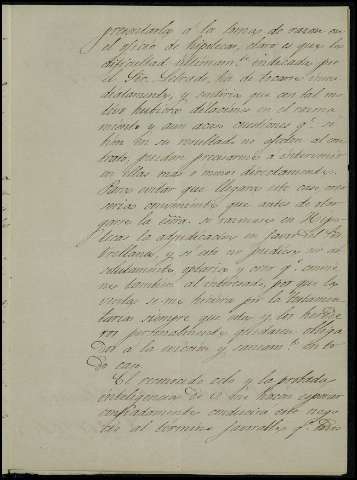 presentarla a la toma de razon en
el oficio de hipotecas, claro es que la
dificultad ultimam.te indicada por
el Sor. Letrado, ha de tocarse inme
diatamente, y sentiria que con tal mo
tivo hubiera dilaciones en el
miento y aun acaso cuestiones q.e si
bien en su resultado no afecten al con
trato, puedan precisarnos a intervenir
en ellas mas o menos directamente.
Para evitar que llegara este caso, creo
mas conveniente que antes de otor
garse la se en Hipo
tecas la adjudicacion en favor del
y si esto no pudiese ser ab
solutamente, optaria y creo q.e convie
ne tambien al interesado, por que la
venta se me hiciera por la Testamen
taria siempre que esta y los herede
ros particularmente quedaran obliga
dos a la eviccion y saneam.to en to
do caso.
El reconocido celo y la probada
inteligencia de V. me hacen esperar
confiadamente conducira este nego
cio al termino favorable q.e